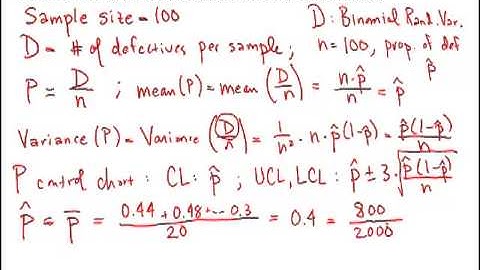 Sample size = 100 D: Binomial Rand. Var.
D = # of defectives per sample; n = 100, prop. of def p̂
P = D/n ; mean(P) = mean(D/n) = n·p̂/n = p̂
Variance(P) = Variance(D/n) = 1/n² · n · p̂(1-p̂) = p̂(1-p̂)/n
P control chart: CL: p̂ ; UCL, LCL: p̂ ± 3·√(p̂(1-p̂)/n)
p̂ = p̄ = (0.44 + 0.48 + ... 0.3)/20 = 0.4 = 800/2000